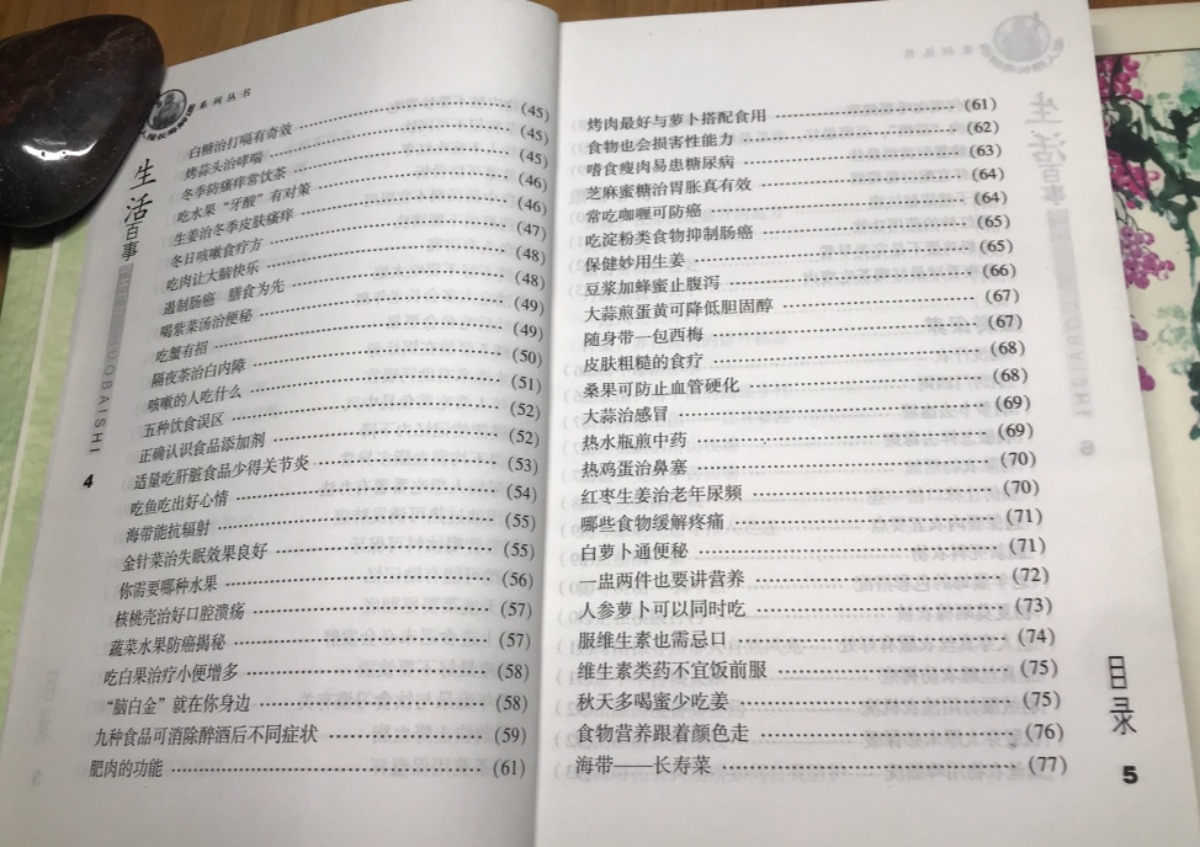 系列丛书
生活百事
UOBAISHI
4
白糖治打嗝有奇效 (45)
烤蒜头治哮喘 (45)
冬季防瘙痒常饮茶 (45)
吃水果“牙酸”有对策 (46)
生姜治冬季皮肤瘙痒 (46)
冬日咳嗽食疗方 (47)
吃肉让大脑快乐 (48)
遏制肠癌 膳食为先 (48)
喝紫菜汤治便秘 (49)
吃蟹有招 (49)
隔夜茶治白内障 (50)
咳嗽的人吃什么 (51)
五种饮食误区 (52)
正确认识食品添加剂 (52)
适量吃肝脏食品少得关节炎 (53)
吃鱼吃出好心情 (54)
海带能抗辐射 (55)
金针菜治失眠效果良好 (55)
你需要哪种水果 (56)
核桃壳治好口腔溃疡 (57)
蔬菜水果防癌揭秘 (57)
吃白果治疗小便增多 (58)
“脑白金”就在你身边 (58)
九种食品可消除醉酒后不同症状 (59)
肥肉的功能 (61)
烤肉最好与萝卜搭配食用 (61)
食物也会损害性能力 (62)
嗜食瘦肉易患糖尿病 (63)
芝麻蜜糖治胃胀真有效 (64)
常吃咖喱可防癌 (64)
吃淀粉类食物抑制肠癌 (65)
保健妙用生姜 (65)
豆浆加蜂蜜止腹泻 (66)
大蒜煎蛋黄可降低胆固醇 (67)
随身带一包西梅 (67)
皮肤粗糙的食疗 (68)
桑果可防止血管硬化 (68)
大蒜治感冒 (69)
热水瓶煎中药 (69)
热鸡蛋治鼻塞 (70)
红枣生姜治老年尿频 (70)
哪些食物缓解疼痛 (71)
白萝卜通便秘 (71)
一盅两件也要讲营养 (72)
人参萝卜可以同时吃 (73)
服维生素也需忌口 (74)
维生素类药不宜饭前服 (75)
秋天多喝蜜少吃姜 (75)
食物营养跟着颜色走 (76)
海带——长寿菜 (77)
目录
5